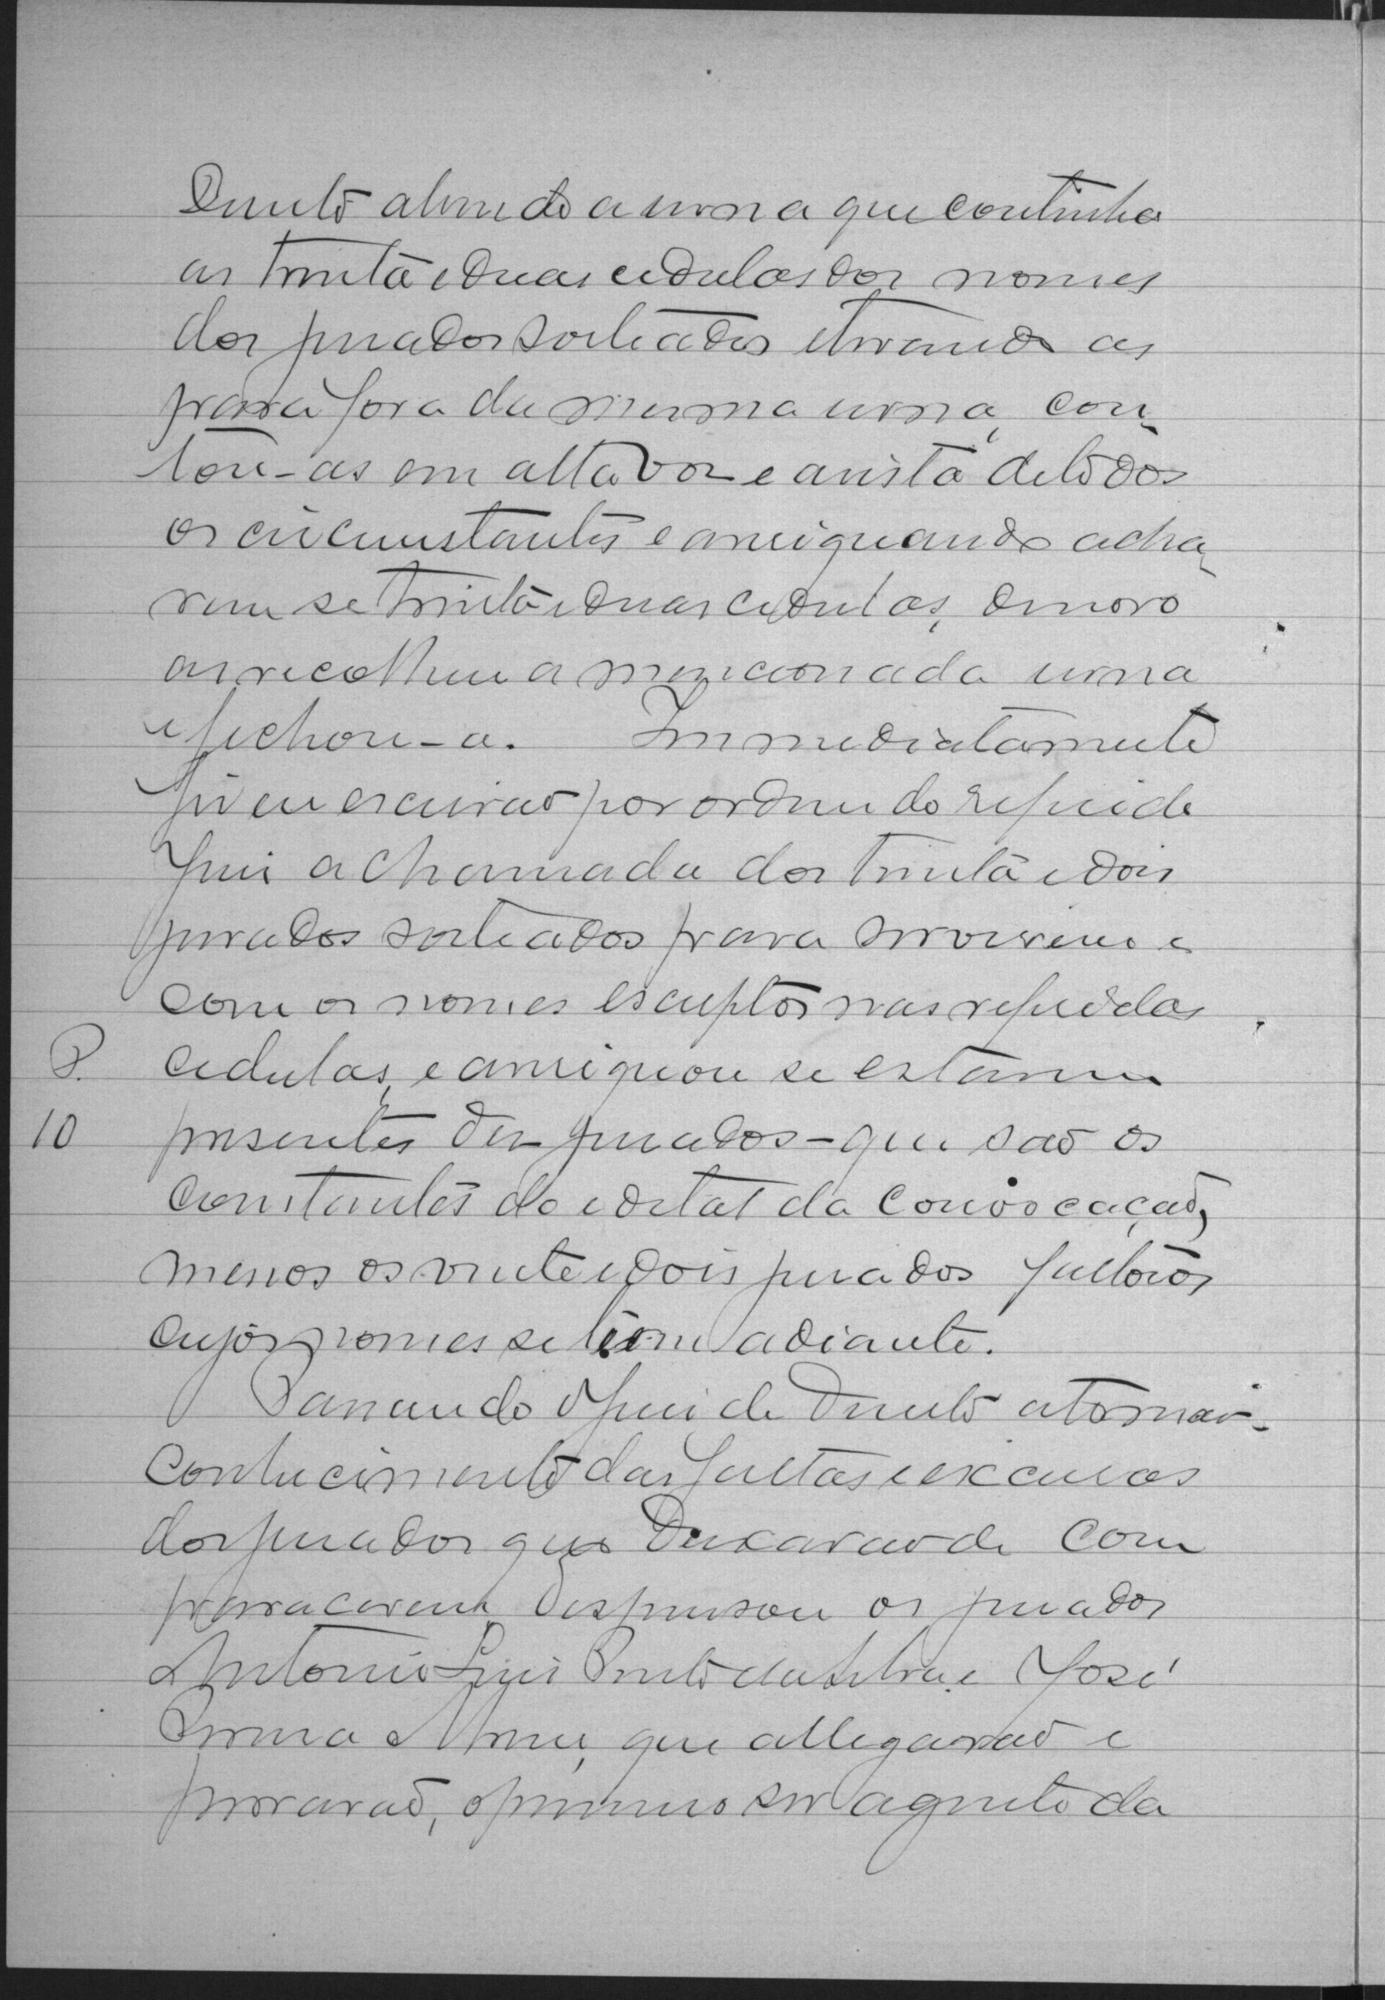 Direito abrindo a urna que continha
as trinta e duas cedulas dos nomes
dos jurados sorteados e tirando as
para fora da mesma urna, con-
tou-as em alta voz e a vista de todos
os circunstantes e averiguando acha-
rem se trinta e duas cedulas, de novo
as recolheu a mencionada urna
e fechou-a. Immediatamente
fiz eu escrivaõ por ordem do referido
Juiz a chamada dos trinta e dois
jurados sorteados para servirem e
com os nomes escriptos nas referidas
P. cedulas, e averiguou se estarem
10 presentes dez jurados - que saõ os
constantes do edital da convocaçaõ,
menos os vinte e dois jurados faltosos
cujos nomes se lêem adiante.
Passando o Juiz de Direito a tomar
conhecimento das faltas e excusas
dos jurados que deixaraõ de com
parecerem, dispensou os jurados
Antonio Luis Pinto da Silva, e José
que allegaraõ e
provaraõ, o primeiro ser agente da